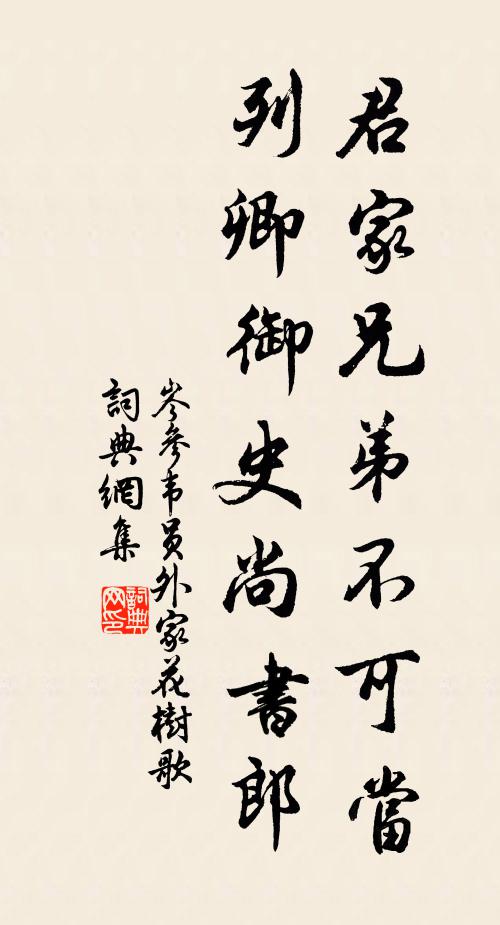 君家兄弟不可當
列卿御史尚書郎
岑參韦员外家花樹歌
詞典網集
詞典
网印